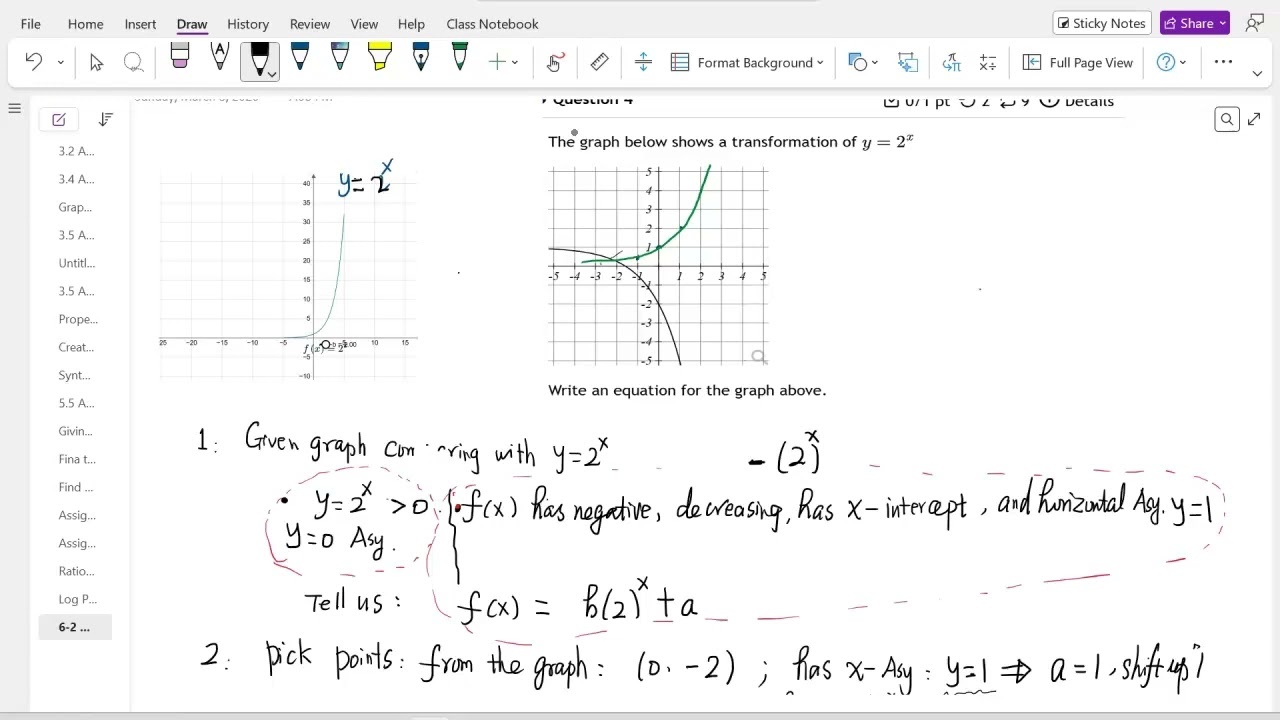 File Home Insert Draw History Review View Help Class Notebook Sticky Notes Share
Format Background Full Page View
Question 4 0/1 pt 2 9 Details
3.2 A...
3.4 A...
Grap...
3.5 A...
Untitl...
3.5 A...
Prope...
Creat...
Synt...
5.5 A...
Givin...
Fina t...
Find ...
Assig...
Assig...
Ratio...
Log P...
6-2 ...
y = 2^x
40
35
30
25
20
15
10
5
25 -20 -15 -10 -5 10 15
-5
-10
The graph below shows a transformation of y = 2^x
5
4
3
2
1
-5 -4 -3 -2 -1 1 2 3 4 5
-1
-2
-3
-4
-5
Write an equation for the graph above.
1. Given graph comparing with y=2^x - (2)^x
• y=2^x >0 • f(x) has negative, decreasing, has x-intercept, and horizontal Asy. y=1
y=0 Asy.
Tell us: f(x) = b(2)^x + a
2. pick points: from the graph: (0. -2) ; has x-Asy: y=1 ⇒ a=1, shift up 1